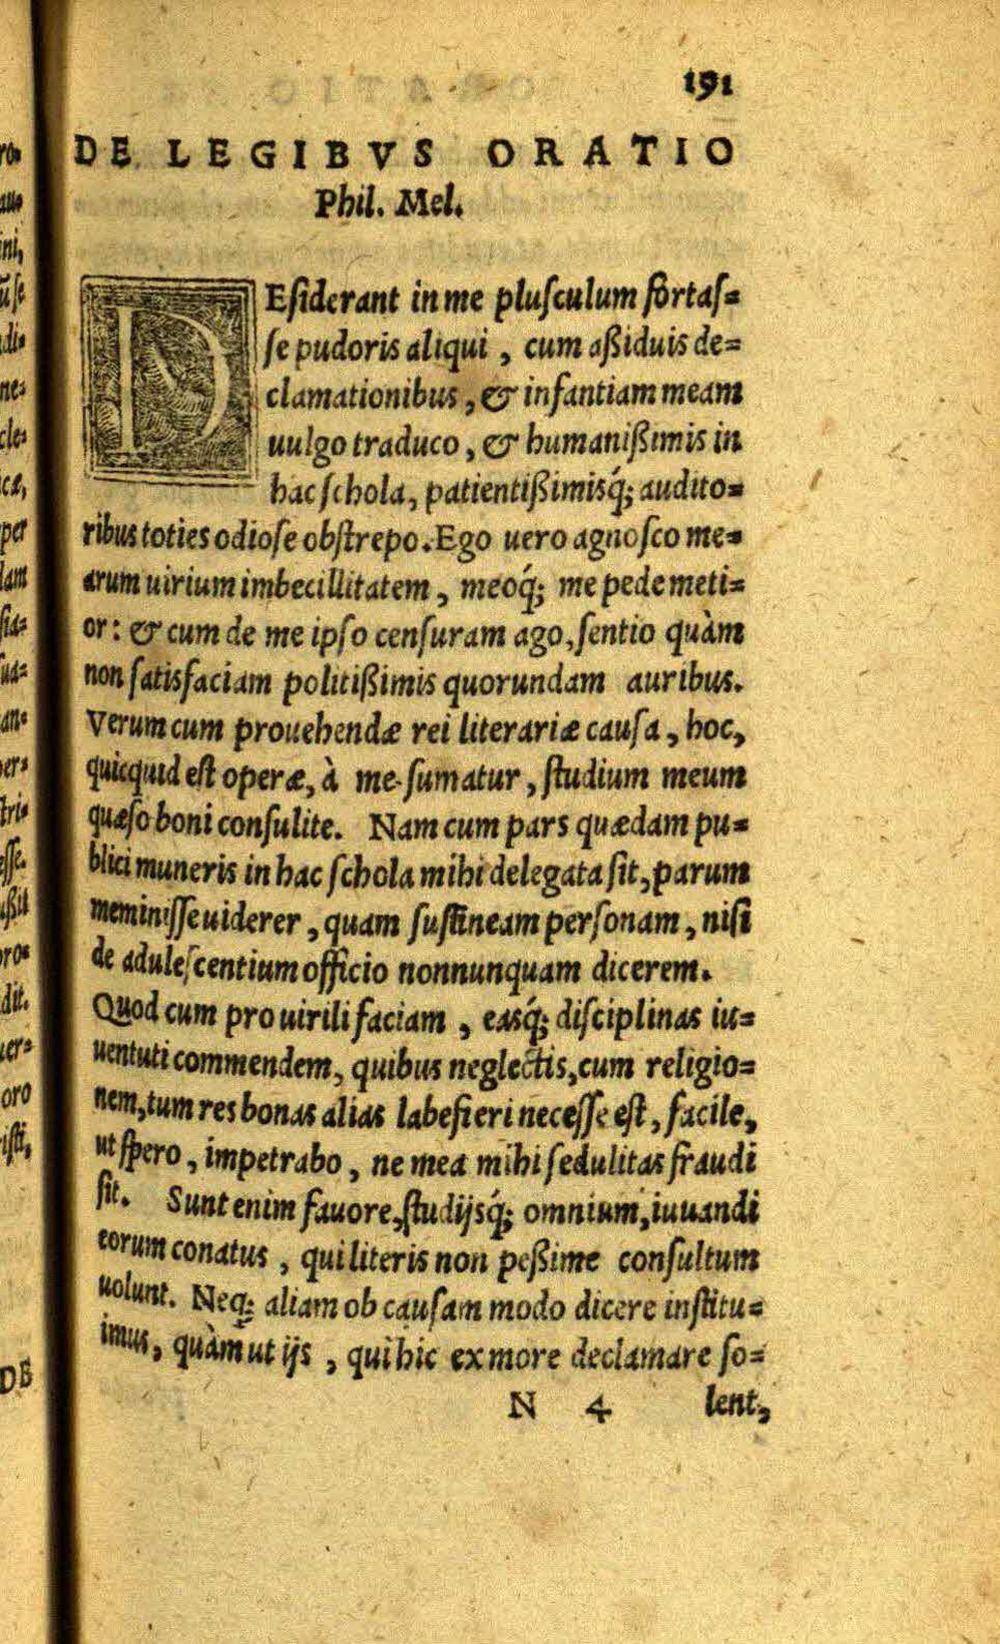 191
DE LEGIBVS ORATIO
Phil. Mel.
DEſiderant in me pluſculum fortaſ=
ſe pudoris aliqui, cum aßiduis de=
clamationibus, & infantiam meam
uulgo traduco, & humanißimis in
hac ſchola, patientißimisq́; audito=
ribus toties odioſe obſtrepo. Ego uero agnoſco me=
arum uirium imbecillitatem, meoq́; me pede meti=
or: & cum de me ipſo cenſuram ago, ſentio quàm
non ſatisfaciam politißimis quorundam auribus.
Verum cum prouehendæ rei literariæ cauſa, hoc,
quicquid eſt operæ, à me ſumatur, ſtudium meum
quæſo boni conſulite. Nam cum pars quædam pu=
blici muneris in hac ſchola mihi delegata ſit, parum
meminiſſe uiderer, quam ſuſtineam perſonam, niſi
de aduleſcentium officio nonnunquam dicerem.
Quod cum pro uirili faciam, easq́; diſciplinas iu=
uentuti commendem, quibus neglectis, cum religio=
nem, tum res bonas alias labefieri neceſſe eſt, facile,
ut ſpero, impetrabo, ne mea mihi ſedulitas fraudi
ſit. Sunt enim fauore, ſtudijsq́; omnium, iuuandi
eorum conatus, qui literis non peßime conſultum
uolunt. Neq; aliam ob cauſam modo dicere inſtitu=
imus, quàm ut ijs, qui hic ex more declamare ſo=
N 4 lent,
DE